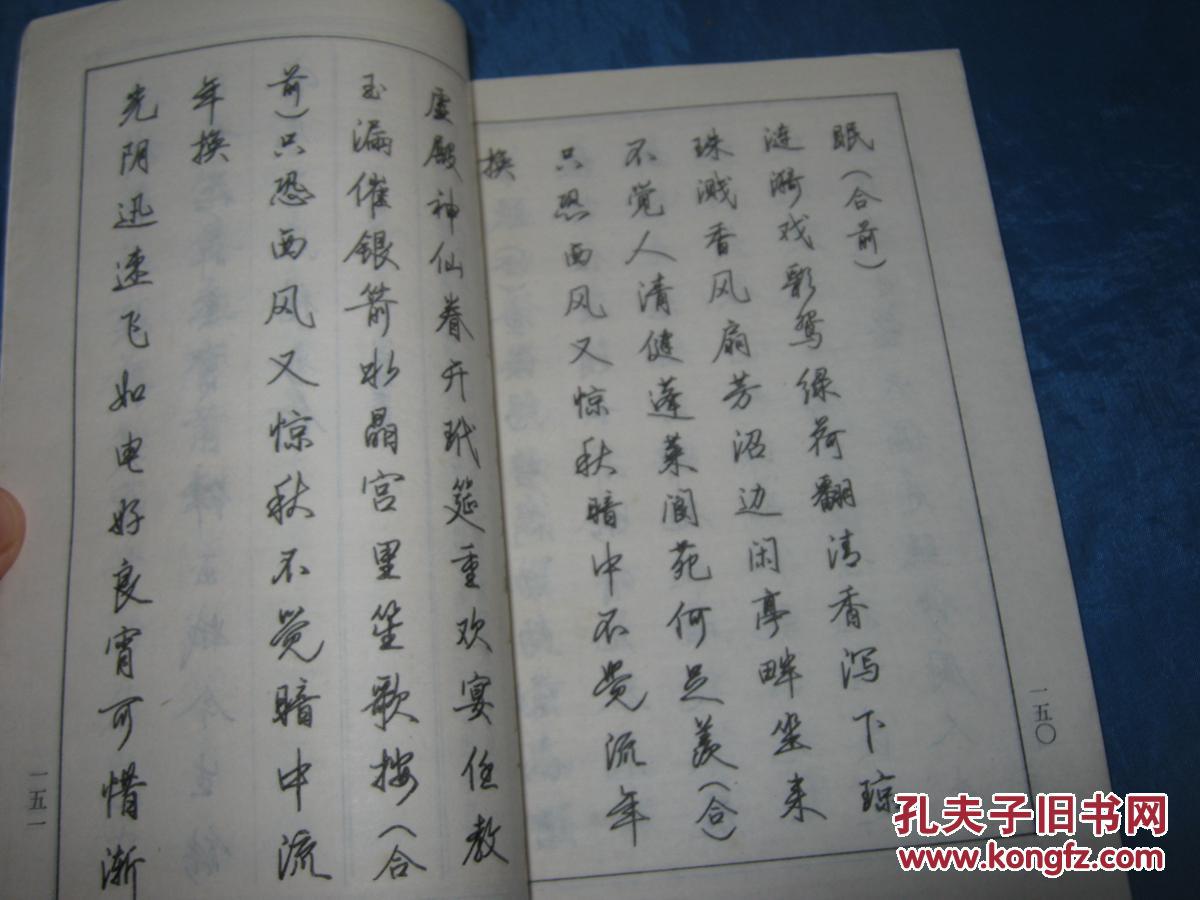 眠（合前）
涟漪戏彩鸳绿荷翻清香泻下琼
珠溅香风扇芳沼边闲亭畔坐来
不觉人清健蓬莱阆苑何足羡（合）
只恐西风又惊秋暗中不觉流年
换
一五〇
虚殿神仙眷开玳筵重欢宴任教
玉漏催银箭水晶宫里笙歌按（合
前）只恐西风又惊秋不觉暗中流
年换
光阴迅速飞如电好良宵可惜渐
一五一
孔夫子旧书网
www.kongfz.com